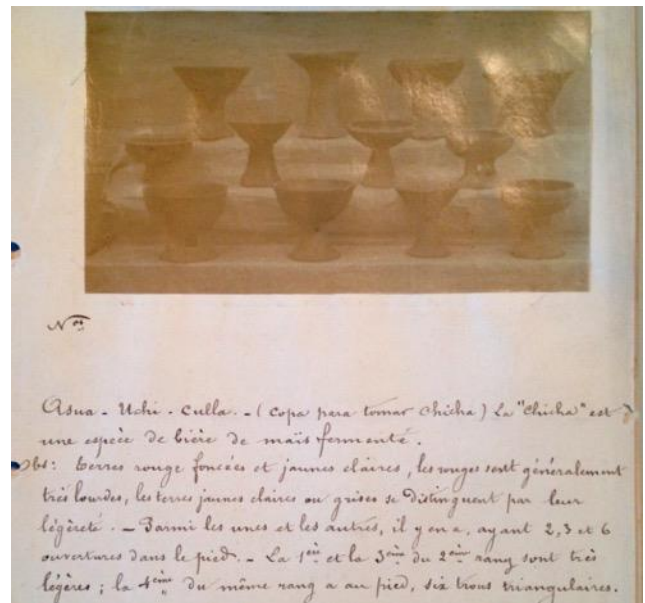 Nos
Asua - Uchi - culla. - (copa para tomar chicha) La "Chicha" est
une espèce de bière de maïs fermenté.
Obs: terres rouge foncées et jaunes claires, les rouges sont généralement
très lourdes, les terres jaunes claires ou grises se distinguent par leur
légèreté. - Parmi les unes et les autres, il y en a, ayant 2, 3 et 6
ouvertures dans le pied. - La 1ère et la 3ème du 2ème rang sont très
légères; la 4ème du même rang a au pied, six trous triangulaires.